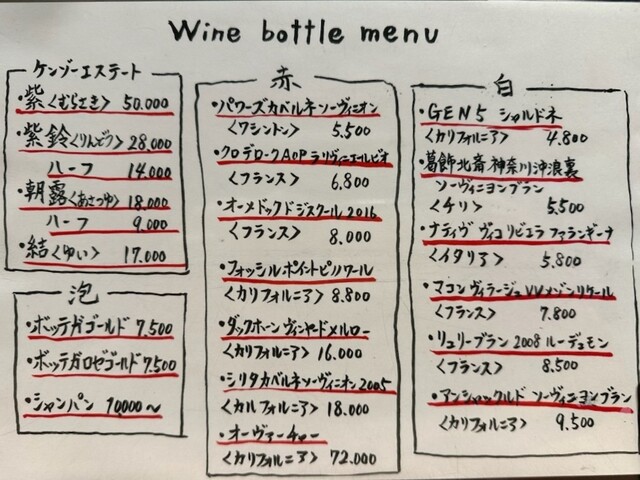 Wine bottle menu
ケンゾーエステート
・紫〈むらさき〉 50.000
紫鈴〈りんどう〉 28,000
ハーフ 14.000
朝露〈あさつゆ〉 18,000
ハーフ 9,000
・結〈ゆい〉 17.000
泡
・ボッテガゴールド 7.500
・ボッテガロゼゴールド 7,500
・シャンパン 10,000〜
赤
・パワーズカベルネソーヴィニオン
〈ワシントン〉 5.500
・クロデロークAOPラリヴィエールビオ
〈フランス〉 6,800
・オーメドックドジスクール 2016
〈フランス〉 8.000
・フォッシルポイントピノノワール
〈カリフォルニア〉 8.800
・ダックホーンヴィンヤードメルロー
〈カリフォルニア〉 16.000
・シリタカベルネソーヴィニオン2005
〈カルフォルニア〉 18.000
・オーヴァーチャー
〈カリフォルニア〉 72.000
白
・GEN5 シャルドネ
〈カリフォルニア〉 4.800
・葛飾北斎神奈川沖浪裏
ソーヴィニヨンブラン
〈チリ〉 5,500
・ナティヴ ヴィコリビエラ ファランギーナ
〈イタリア〉 5.800
・マコンヴィラージュVVメゾンリケール
〈フランス〉 7.800
・リュリーブラン 2008 ルーデュモン
〈フランス〉 8,500
・アンシャックルド ソーヴィニヨンブラン
〈カリフォルニア〉 9.500